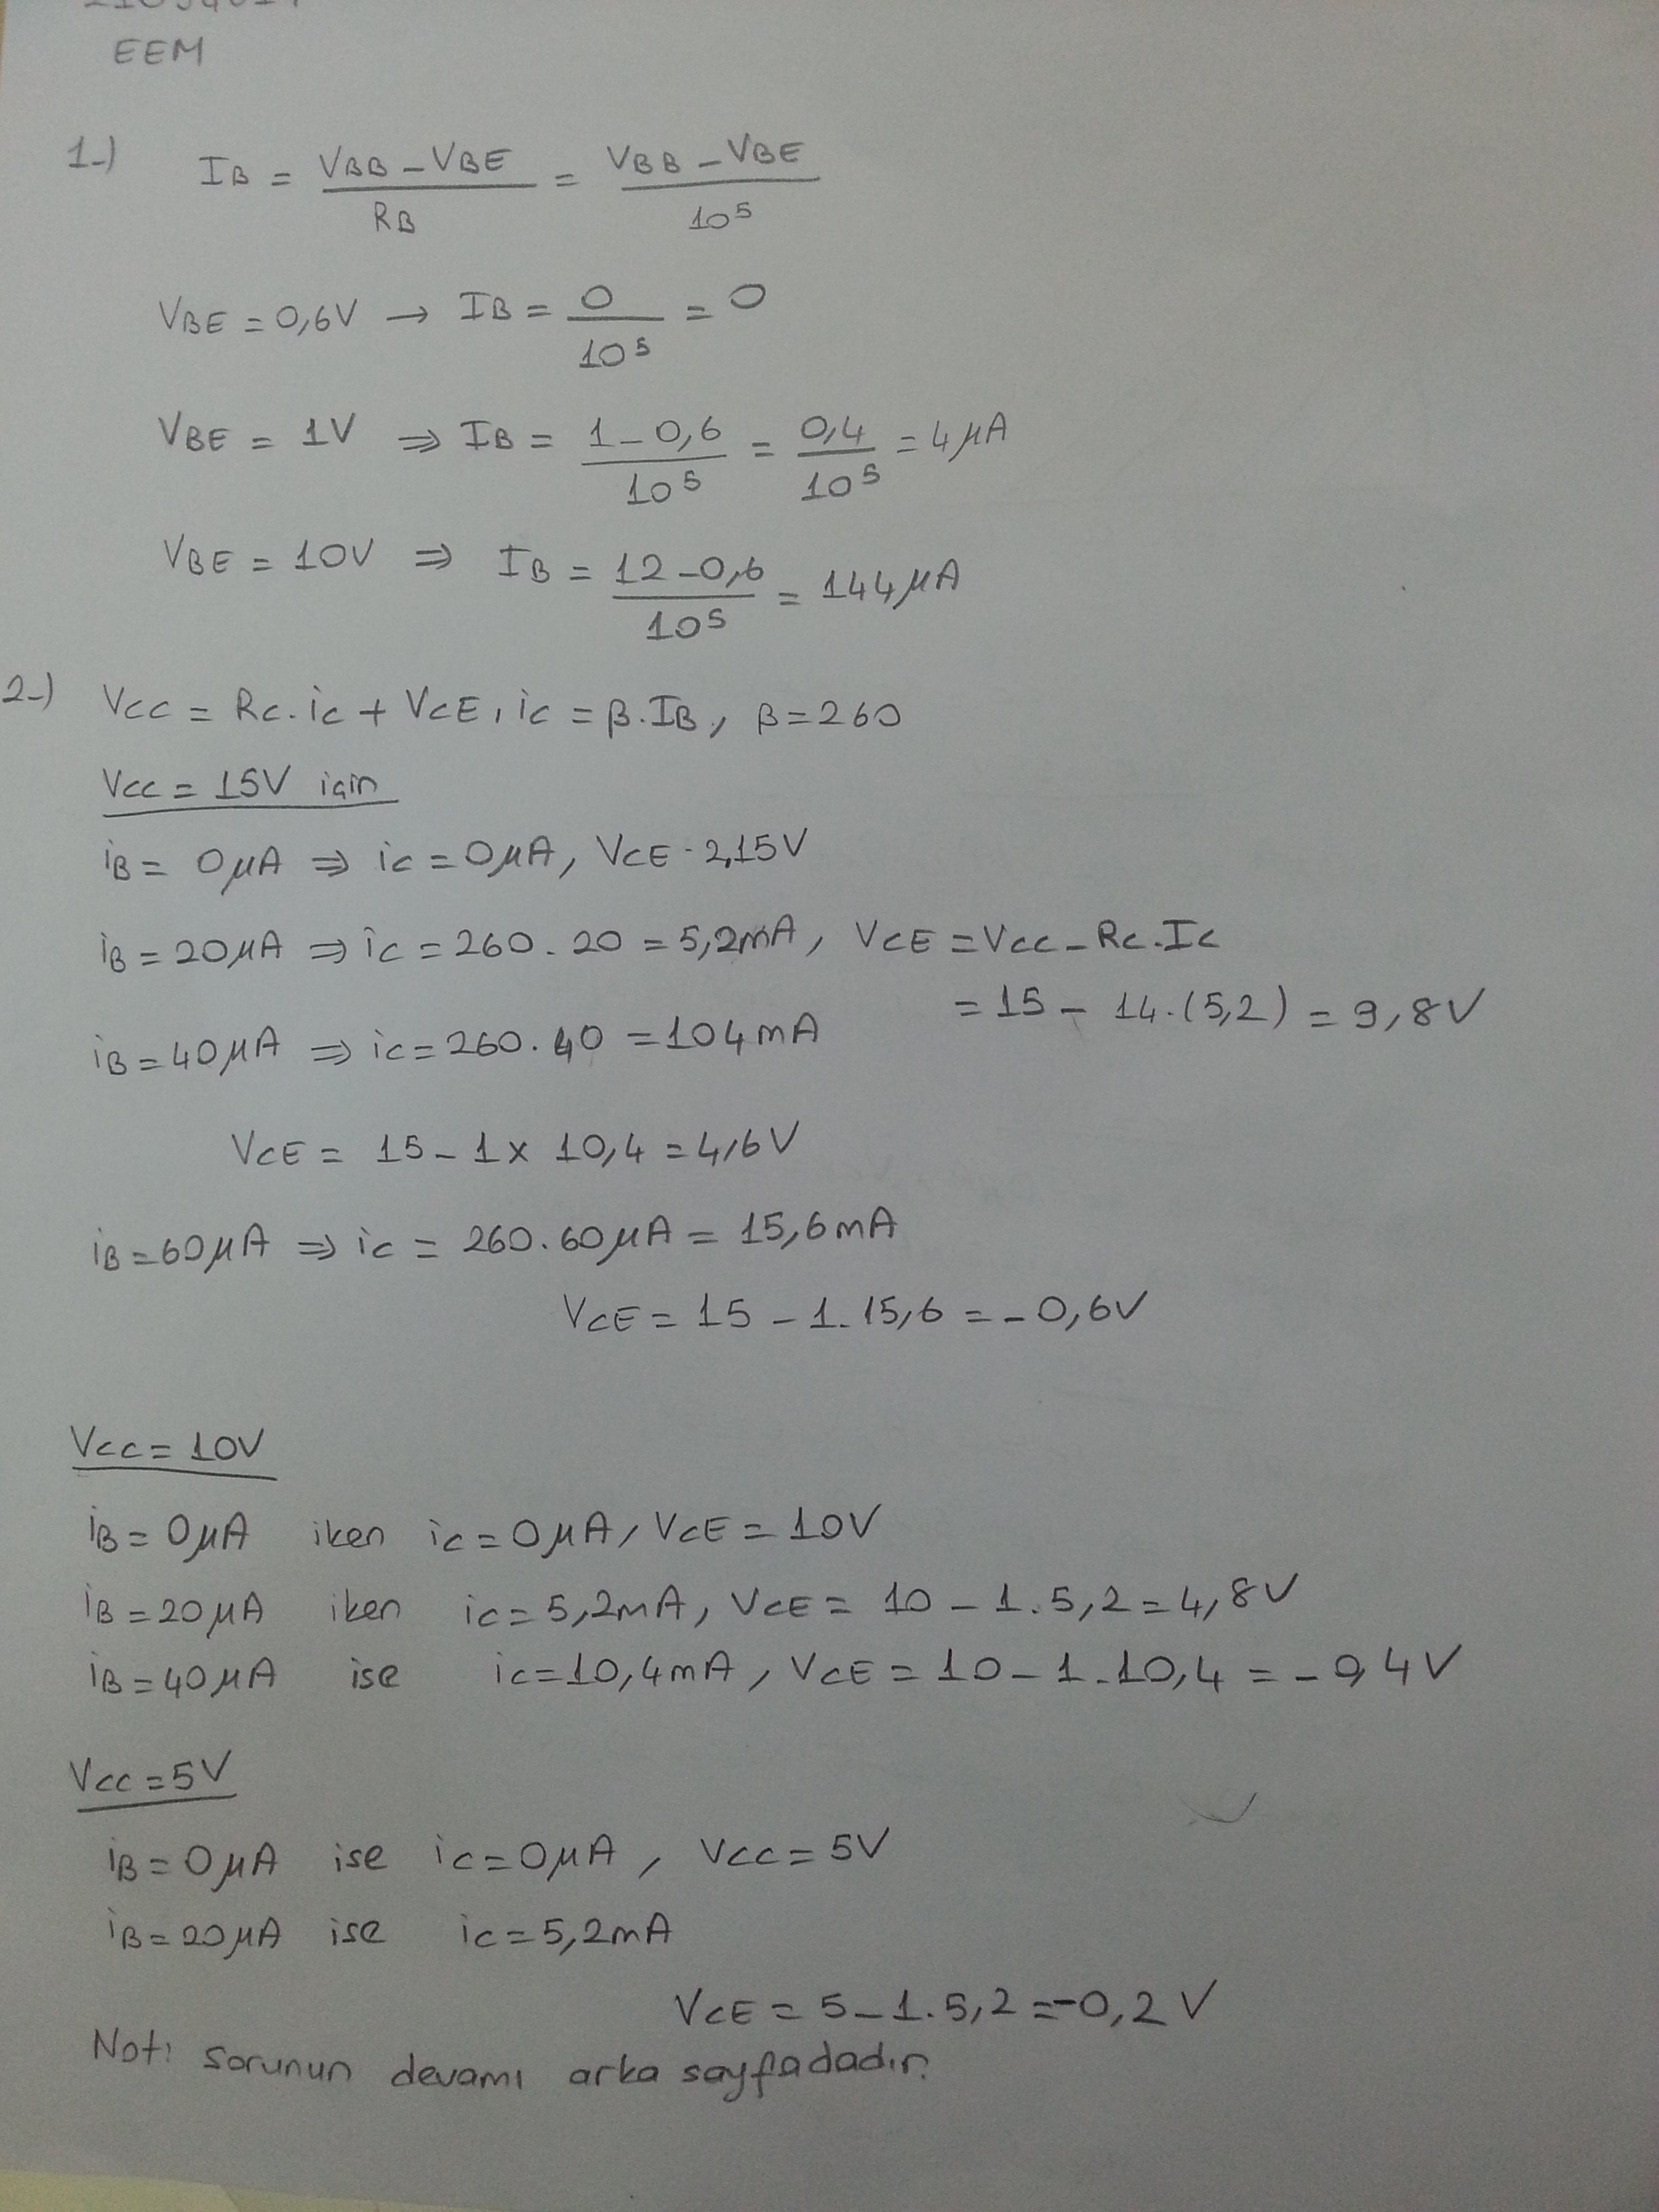 EEM
1-) IB = VBB - VBE / RB = VBB - VBE / 10^5
VBE = 0,6V → IB = 0 / 10^5 = 0
VBE = 1V ⇒ IB = 1 - 0,6 / 10^5 = 0,4 / 10^5 = 4 μA
VBE = 10V ⇒ IB = 12 - 0,6 / 10^5 = 144 μA
2-) VCC = RC.iC + VCE, iC = β.IB, β = 260
VCC = 15V için
iB = 0 μA ⇒ iC = 0 μA, VCE · 2,15V
iB = 20 μA ⇒ iC = 260 . 20 = 5,2mA, VCE = VCC - RC.IC
= 15 - 14.(5,2) = 9,8V
iB = 40 μA ⇒ iC = 260 . 40 = 104 mA
VCE = 15 - 1 x 10,4 = 4,6V
iB = 60 μA ⇒ iC = 260 . 60 μA = 15,6 mA
VCE = 15 - 1 . 15,6 = - 0,6V
VCC = 10V
iB = 0 μA iken iC = 0 μA, VCE = 10V
iB = 20 μA iken iC = 5,2mA, VCE = 10 - 1 . 5,2 = 4,8V
iB = 40 μA ise iC = 10,4 mA, VCE = 10 - 1 . 10,4 = - 0,4V
VCC = 5V
iB = 0 μA ise iC = 0 μA, VCC = 5V
iB = 20 μA ise iC = 5,2mA
VCE = 5 - 1 . 5,2 = -0,2 V
Not: Sorunun devamı arka sayfadadır.